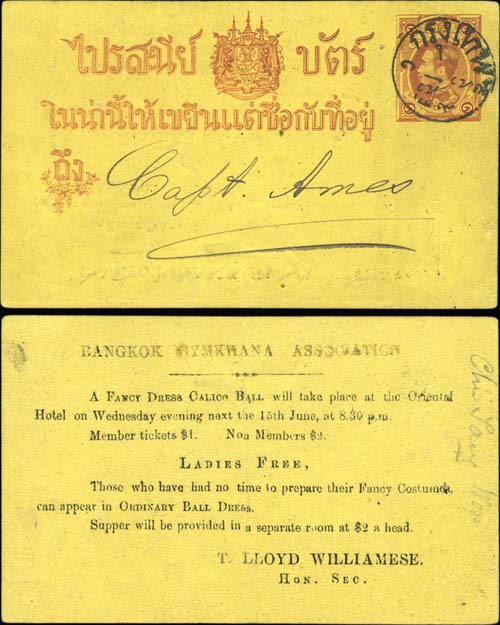 ไปรสนีย์ บัตร์
ในน่านี้ให้เขียนแต่ชื่อกับที่อยู่
ถึง
Capt. Ames
กรุงเทพฯ
BANGKOK GYMKHANA ASSOCIATION
A FANCY DRESS CALICO BALL will take place at the Oriental
Hotel on Wednesday evening next the 15th June, at 8.30 p.m.
Member tickets $1. Non Members $2.
LADIES FREE,
Those who have had no time to prepare their Fancy Costumes,
can appear in ORDINARY BALL DRESS.
Supper will be provided in a separate room at $2 a head.
T. LLOYD WILLIAMESE.
HON. SEC.